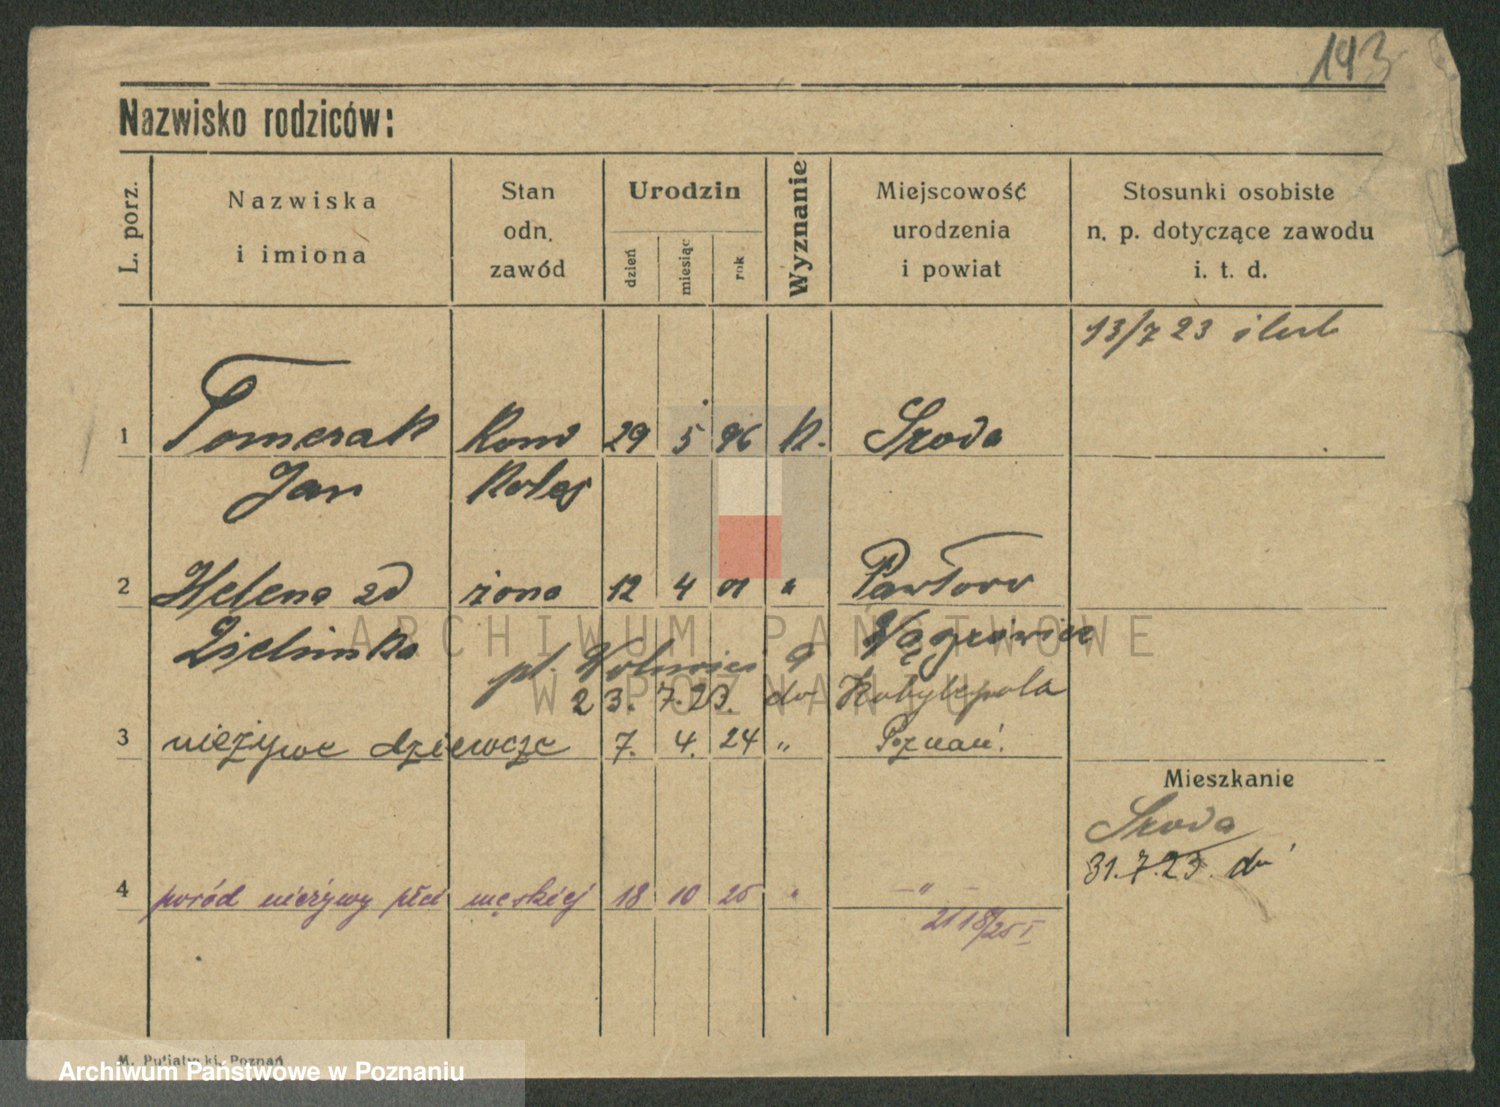 143
Nazwisko rodziców:
L. porz.
Nazwiska
i imiona
Stan
odn.
zawód
Urodzin
dzień
miesiąc
rok
Wyznanie
Miejscowość
urodzenia
i powiat
Stosunki osobiste
n. p. dotyczące zawodu
i. t. d.
13/7 23
1 Tomczak Kond 29 5 96 K. Środa
Jan Kolej
2 Helena zd żona 12 4 01 " Pawłowo
Zielińska Wągrowiec
pl. 9
23. 7.23. do Kobylepola
3 nieżywe dziewczę 7. 4. 24 " Poznań.
Mieszkanie
Środa
31.7.23.
4 poród nieżywy płci męskiej 18 10 25 " -"-
ARCHIWUM PAŃSTWOWE
W POZNANIU
M. Putiatycki, Poznań
Archiwum Państwowe w Poznaniu